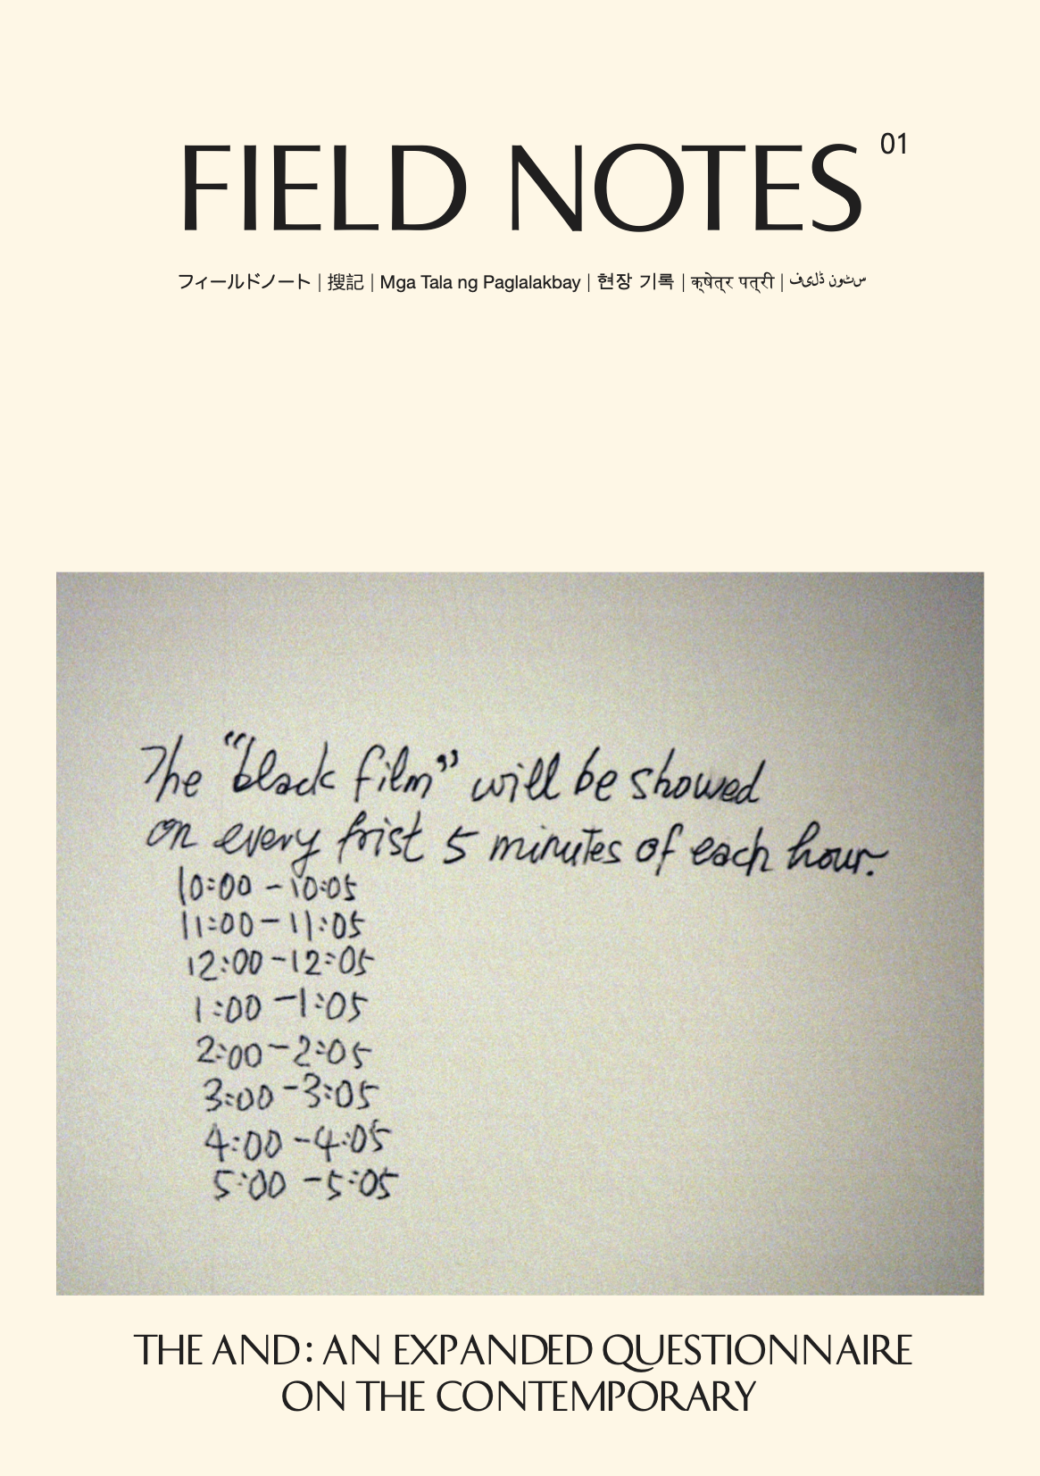 FIELD NOTES 01
フィールドノート | 搜記 | Mga Tala ng Paglalakbay | 현장 기록 | क्षेत्र पत्री | سٹون ڈلیف
The "black film" will be showed
on every frist 5 minutes of each hour.
10:00 - 10:05
11:00 - 11:05
12:00 - 12:05
1:00 - 1:05
2:00 - 2:05
3:00 - 3:05
4:00 - 4:05
5:00 - 5:05
THE AND: AN EXPANDED QUESTIONNAIRE
ON THE CONTEMPORARY